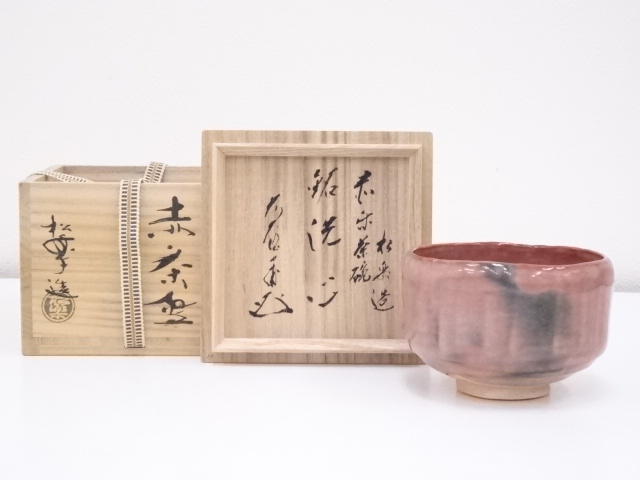 赤茶碗
松楽造
楽
松楽造
赤楽茶碗
銘 洗心